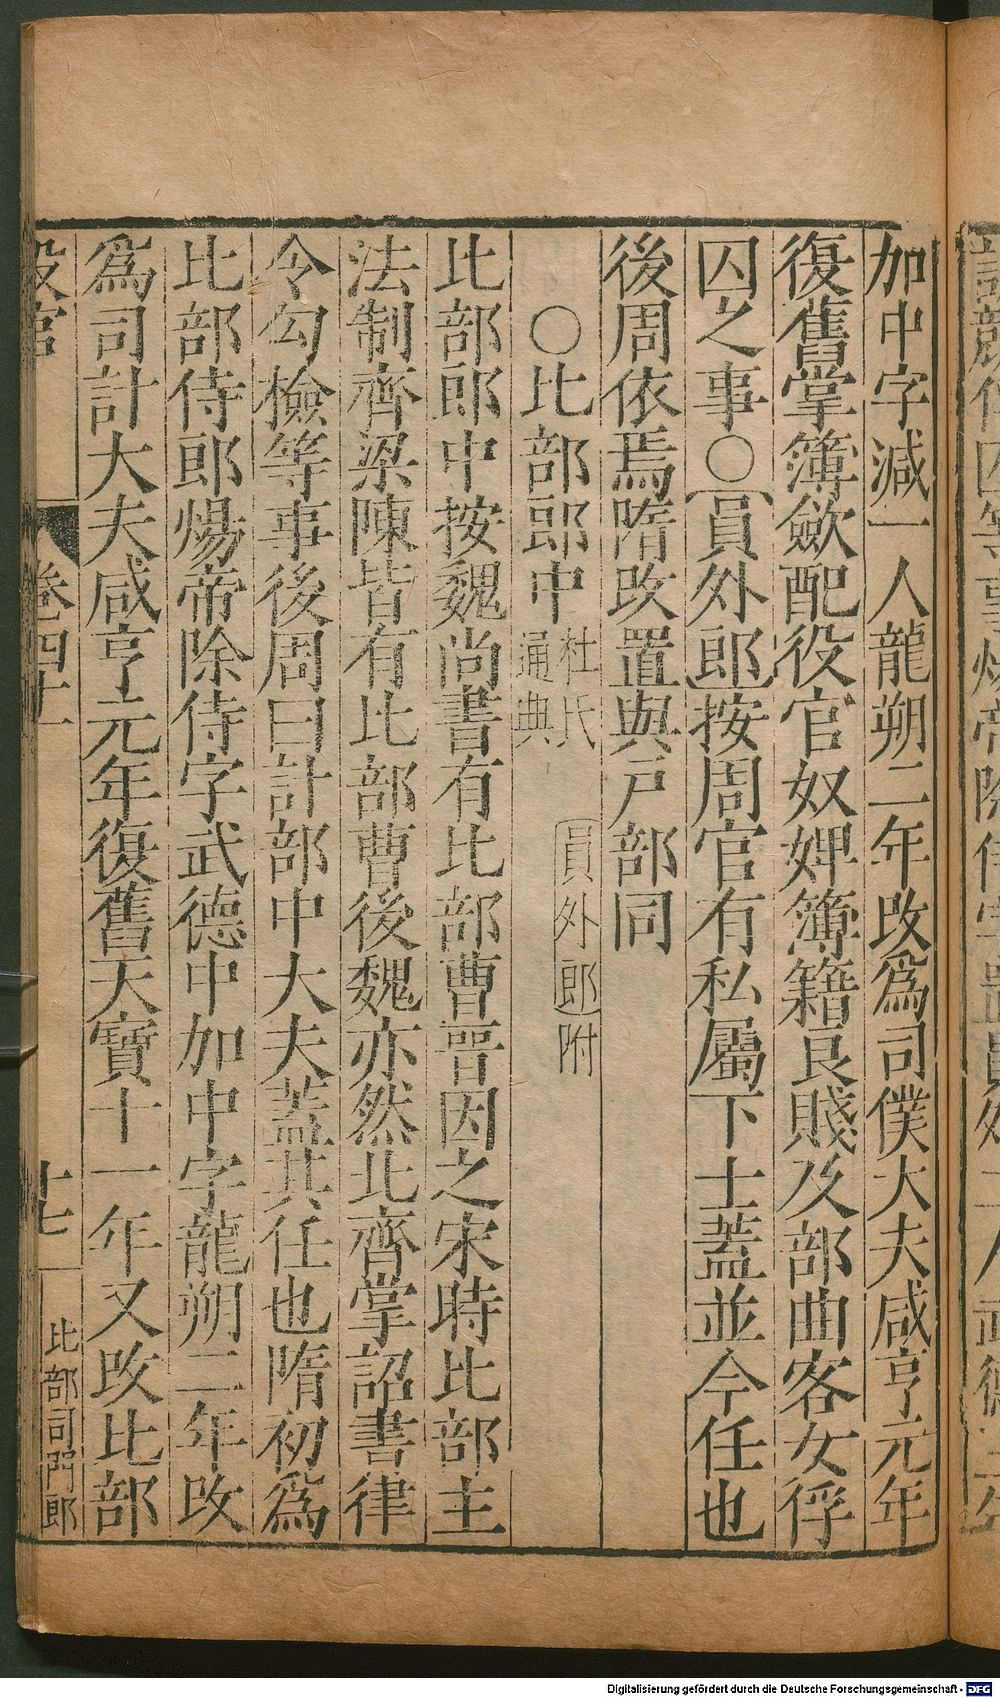 加中字減一人龍朔二年改爲司僕大夫咸亨元年
復舊掌簿斂配役官奴婢簿籍良賤及部曲客女俘
囚之事○員外郎按周官有私屬下士蓋並今任也
後周依焉隋改置與戸部同
○比部郎中杜氏通典 員外郎附
比部郎中按魏尚書有比部曹晉因之宋時比部主
法制齊梁陳皆有比部曹後魏亦然北齊掌詔書律
令勾檢等事後周曰計部中大夫蓋其任也隋初爲
比部侍郎煬帝除侍字武德中加中字龍朔二年改
爲司計大夫咸亨元年復舊天寶十一年又改比部
設官 卷四十 十七 比部司門郎
Digitalisierung gefördert durch die Deutsche Forschungsgemeinschaft - DFG